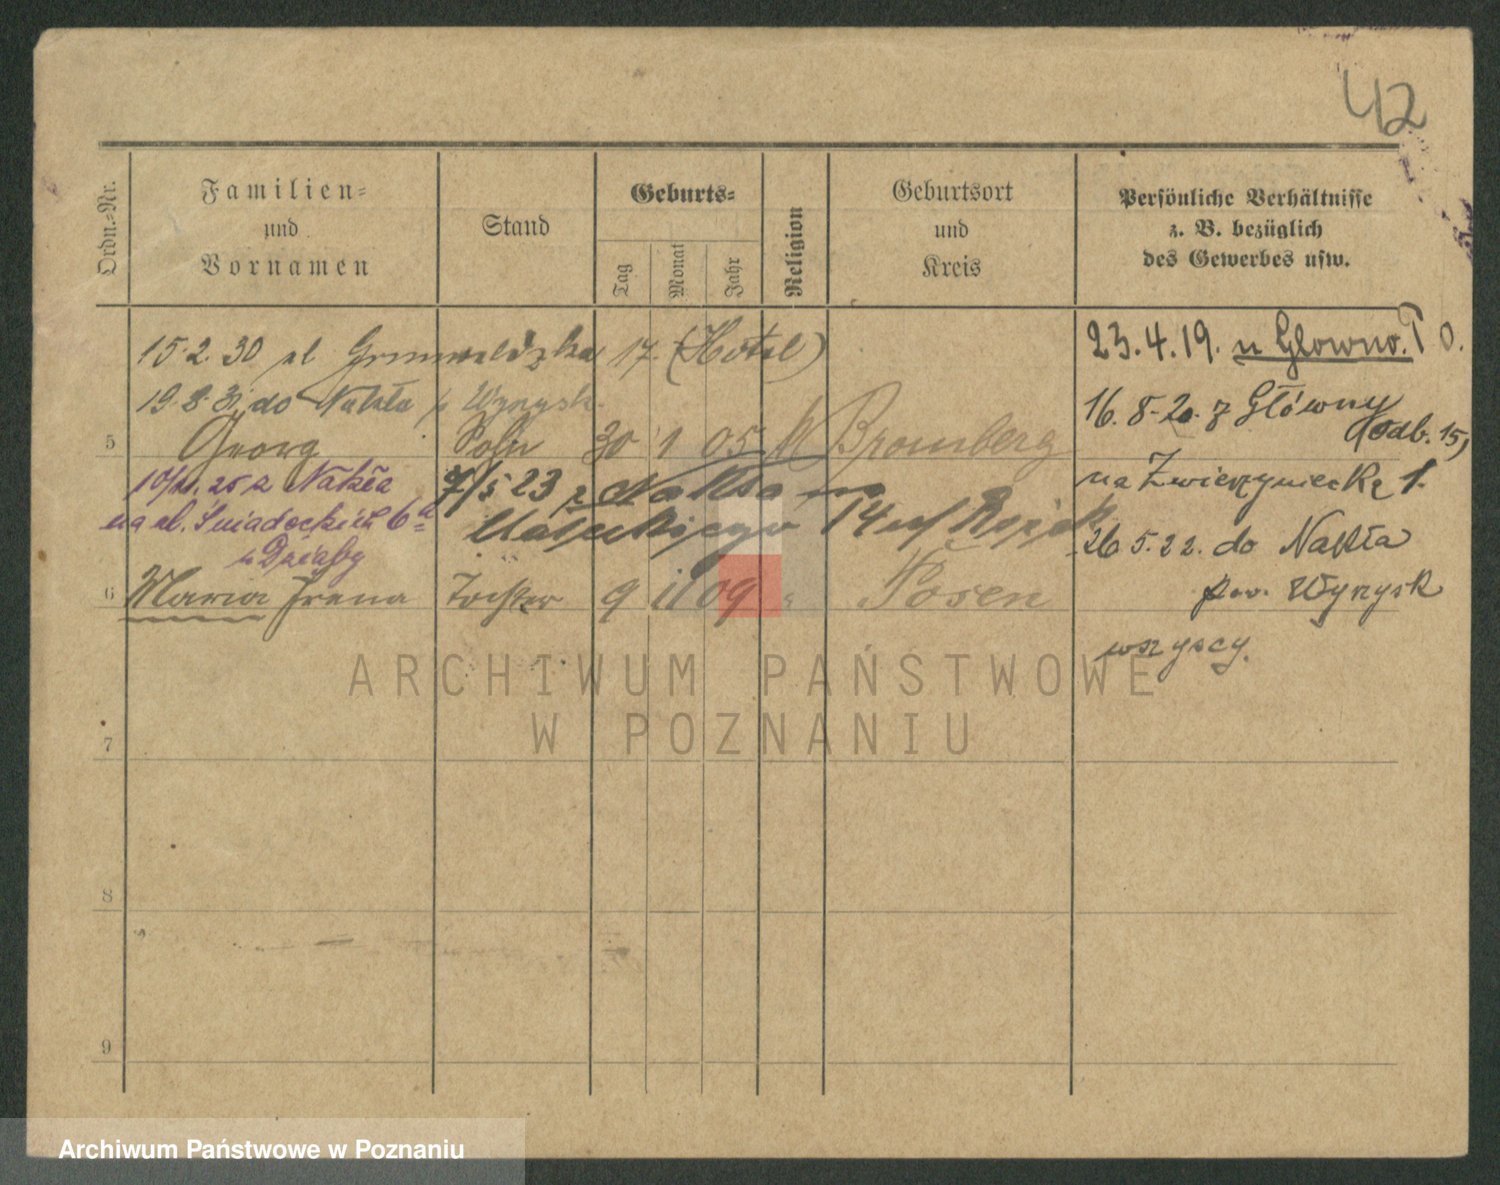 42
Ordn.-Nr.
Familien-
und
Vornamen
Stand
Geburts-
Tag
Monat
Jahr
Religion
Geburtsort
und
Kreis
Persönliche Verhältnisse
z. B. bezüglich
des Gewerbes usw.
15.2.30 ul Grunwaldzka 17. (Hotel)
19.8.31 do Nakła p Wyrzysk.
5 Georg Sohn 30 1 05 Bromberg
25 z Nakła
na ul. Śniadeckich 6a
u Działy
7/5 23 z Nakła na
Małeckiego 14
6 Maria Irena Tochter 9 11 09 Posen
23.4.19. n Glowno. P O.
16.8.20. z Główny
(odb. 15)
na Zwierzyniecką 1.
26 5.22. do Nakła
pow. Wyrzysk
wszyscy.
7
8
9
ARCHIWUM PAŃSTWOWE
W POZNANIU
Archiwum Państwowe w Poznaniu